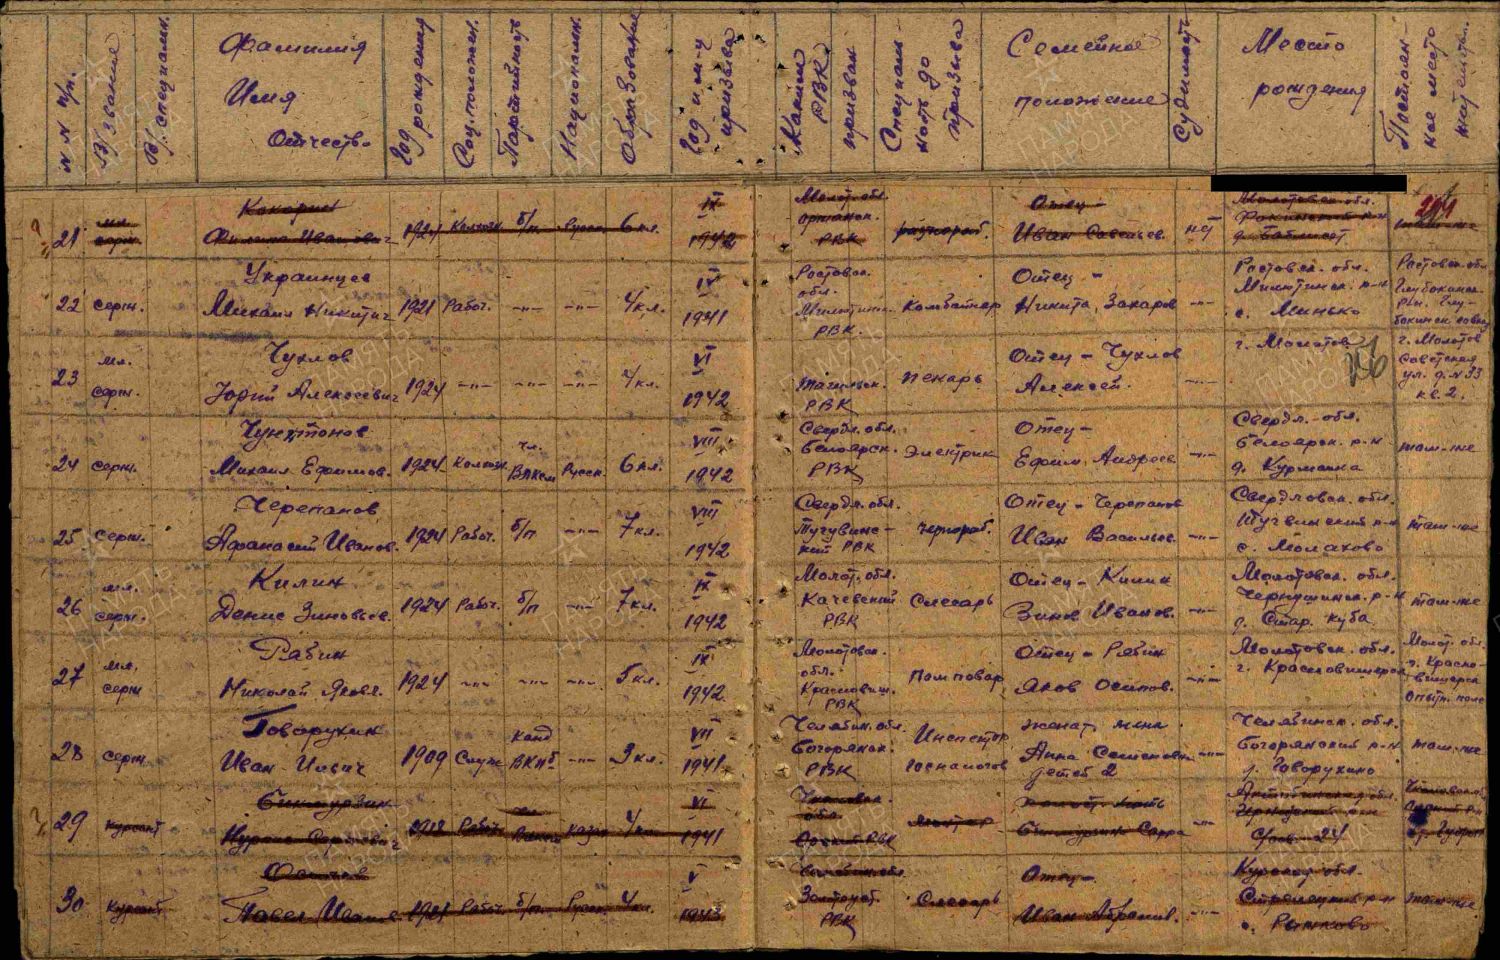 N N п/п.
В/звание
В/специальн.
Фамилия
Имя
Отчество
Год рождения
Соц. положен.
Партийность
Национальн.
Образование
Год и м-ц
призыва
Каким
РВК
призван
Специаль-
ность до
призыва
Семейное
положение
Судимость
Место
рождения
Постоян-
ное место
жительст.
21 мл. серж. Кокорин
Филипп Иванович 1924 Колхозн. б/п Русск. 6 кл. IX 1942
Молот. обл.
РВК разнораб. Отец -
Иван Савельев. нет Молотовск. обл.
Фокинский р-н
там-же
22 серж. Украинцев
Михаил Никитич 1921 Рабоч. -"- -"- 4 кл. IV 1941
Ростовск.
обл.
Милютинс.
РВК. Комбайнер Отец -
Никита Захаров -"- Ростовск. обл.
Милютинск. р-н
с. Минько Ростовск. обл.
Глубокинск.
р-н. Глу-
23 мл. серж. Чухлов
Юрий Алексеевич 1924 -"- -"- -"- 7 кл. VI 1942
Тагильск.
РВК Пекарь Отец - Чухлов
Алексей. -"- г. Молотов г. Молотов
Советская
ул. д. N 33
кв. 2.
24 серж. Чунтонов
Михаил Ефимов. 1924 Колхозн. чл. ВЛКСМ Русск. 6 кл. VIII 1942
Свердл. обл.
Белоярск.
РВК Электрик Отец -
Ефим Андреев -"- Свердл. обл.
Белоярск. р-н
д. Курманка там-же
25 серж. Черепанов
Афанасий Иванов. 1924 Рабоч. б/п -"- 7 кл. VIII 1942
Свердл. обл.
Тугувинс-
кий РВК чернораб. Отец - Черепанов
Иван Васильев. -"- Свердловск. обл.
с. Молаково там-же
26 мл. серж. Килин
Денис Зиновьев. 1924 Рабоч. б/п -"- 7 кл. IX 1942
Молот. обл.
Качевский
РВК Слесарь Отец - Килин
Зинов Иванов. -"- Молотовск. обл.
Чернушинск. р-н
д. Стар. Куба там-же
27 мл. серж Рябин
Николай Яковл. 1924 -"- -"- -"- 5 кл. IX 1942
Молотовск.
обл.
Красновиш.
РВК Пом повар Отец - Рябин
Яков Осипов. -"- Молотовск. обл.
г. Красновишерск Молот. обл.
г. Красно-
вишерск
28 серж. Говорухин
Иван Ильич 1909 Служ канд ВКПб -"- 9 кл. VII 1941
Челябин. обл.
Богорянск.
РВК Инспектор
Госналогов женат жена
Анна Семеновна
детей 2 -"- Челябинск. обл.
Богорянский р-н
д. Говорухино там-же
29 курсант 1918 Рабоч. 4 кл. VI 1941
обл.
РВК -"-
30 курсант
Павел Иванов 1921 Рабоч. б/п. Русск. 4 кл. V 1943
Златоуст.
РВК Слесарь Отец -
Иван Абрамив. -"- Курской обл.
Стрелецкий р-н
с. Рышково там-же